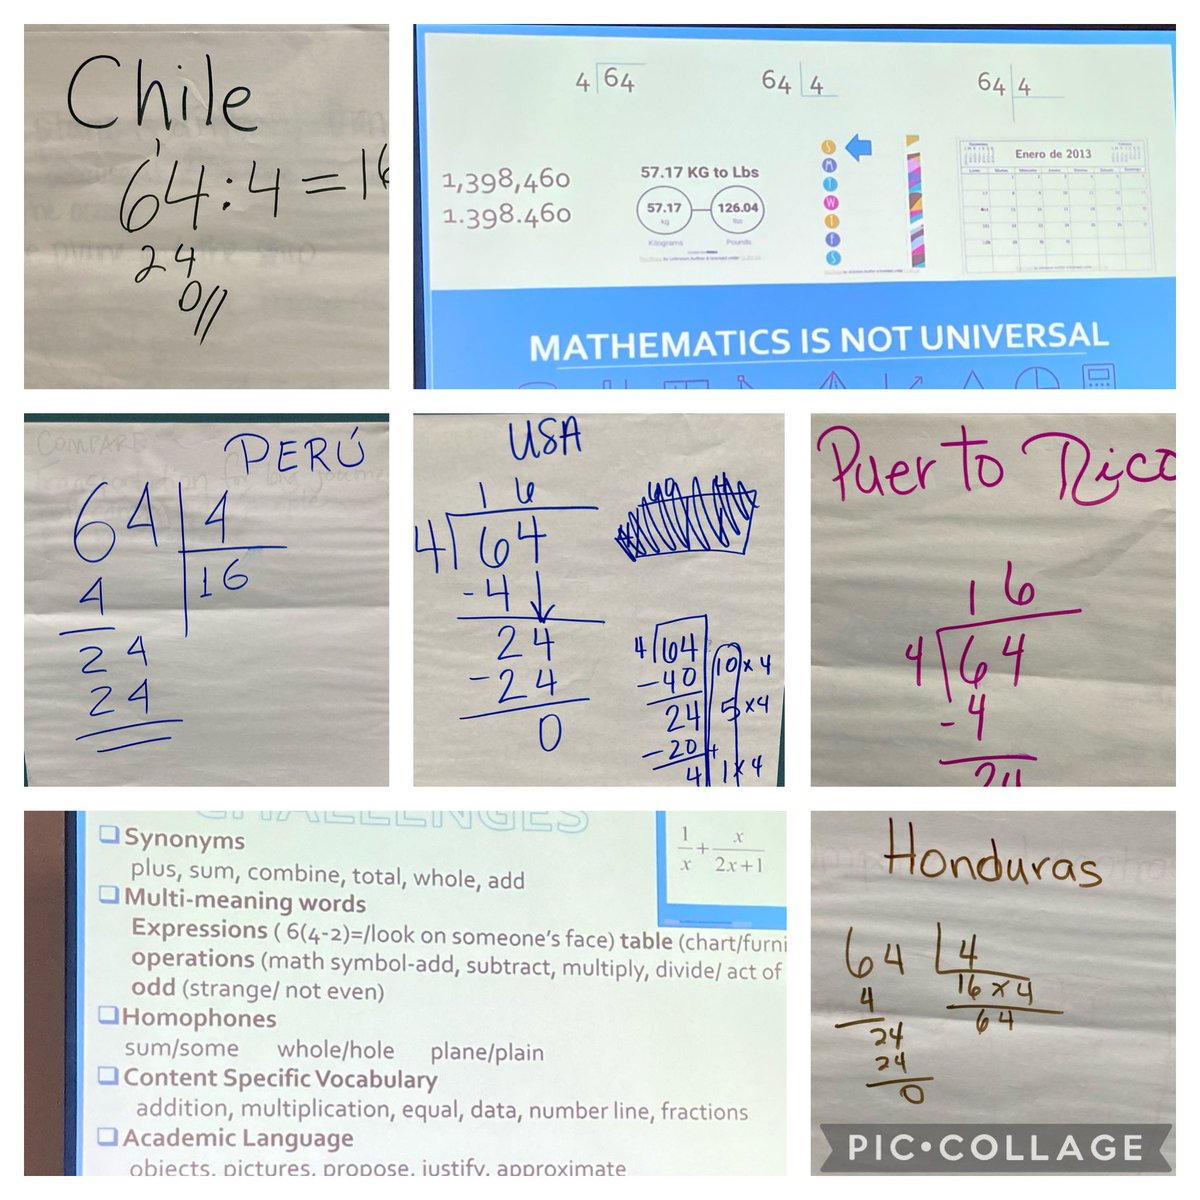 Chile
64:4=16
24
0//
4 64
64 4
64 4
1,398,460
1.398.460
57.17 KG to Lbs
57.17
kg
126.04
lbs
Kilograms
Pounds
S
M
T
W
T
F
S
Enero de 2013
MATHEMATICS IS NOT UNIVERSAL
COMPARE
PERÚ
64 4
4 16
24
24
USA
16
4 64
-4
24
-24
0
4 64
-40 10x4
24 5x4
-20
4 1x4
Puerto Rico
16
4 64
-4
24
CHALLENGES
Synonyms
plus, sum, combine, total, whole, add
Multi-meaning words
Expressions ( 6(4-2)=/look on someone's face) table (chart/furni
operations (math symbol-add, subtract, multiply, divide/ act of
odd (strange/ not even)
Homophones
sum/some whole/hole plane/plain
Content Specific Vocabulary
addition, multiplication, equal, data, number line, fractions
Academic Language
objects, pictures, propose, justify, approximate
1/x + x/2x+1
Honduras
64 4
4 16 x 4
24 64
24
0
PIC•COLLAGE